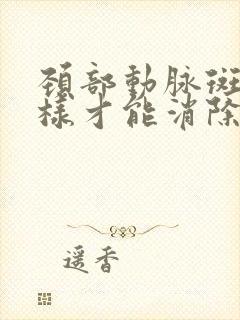 頸部動脉斑
樣才能消除
遥香